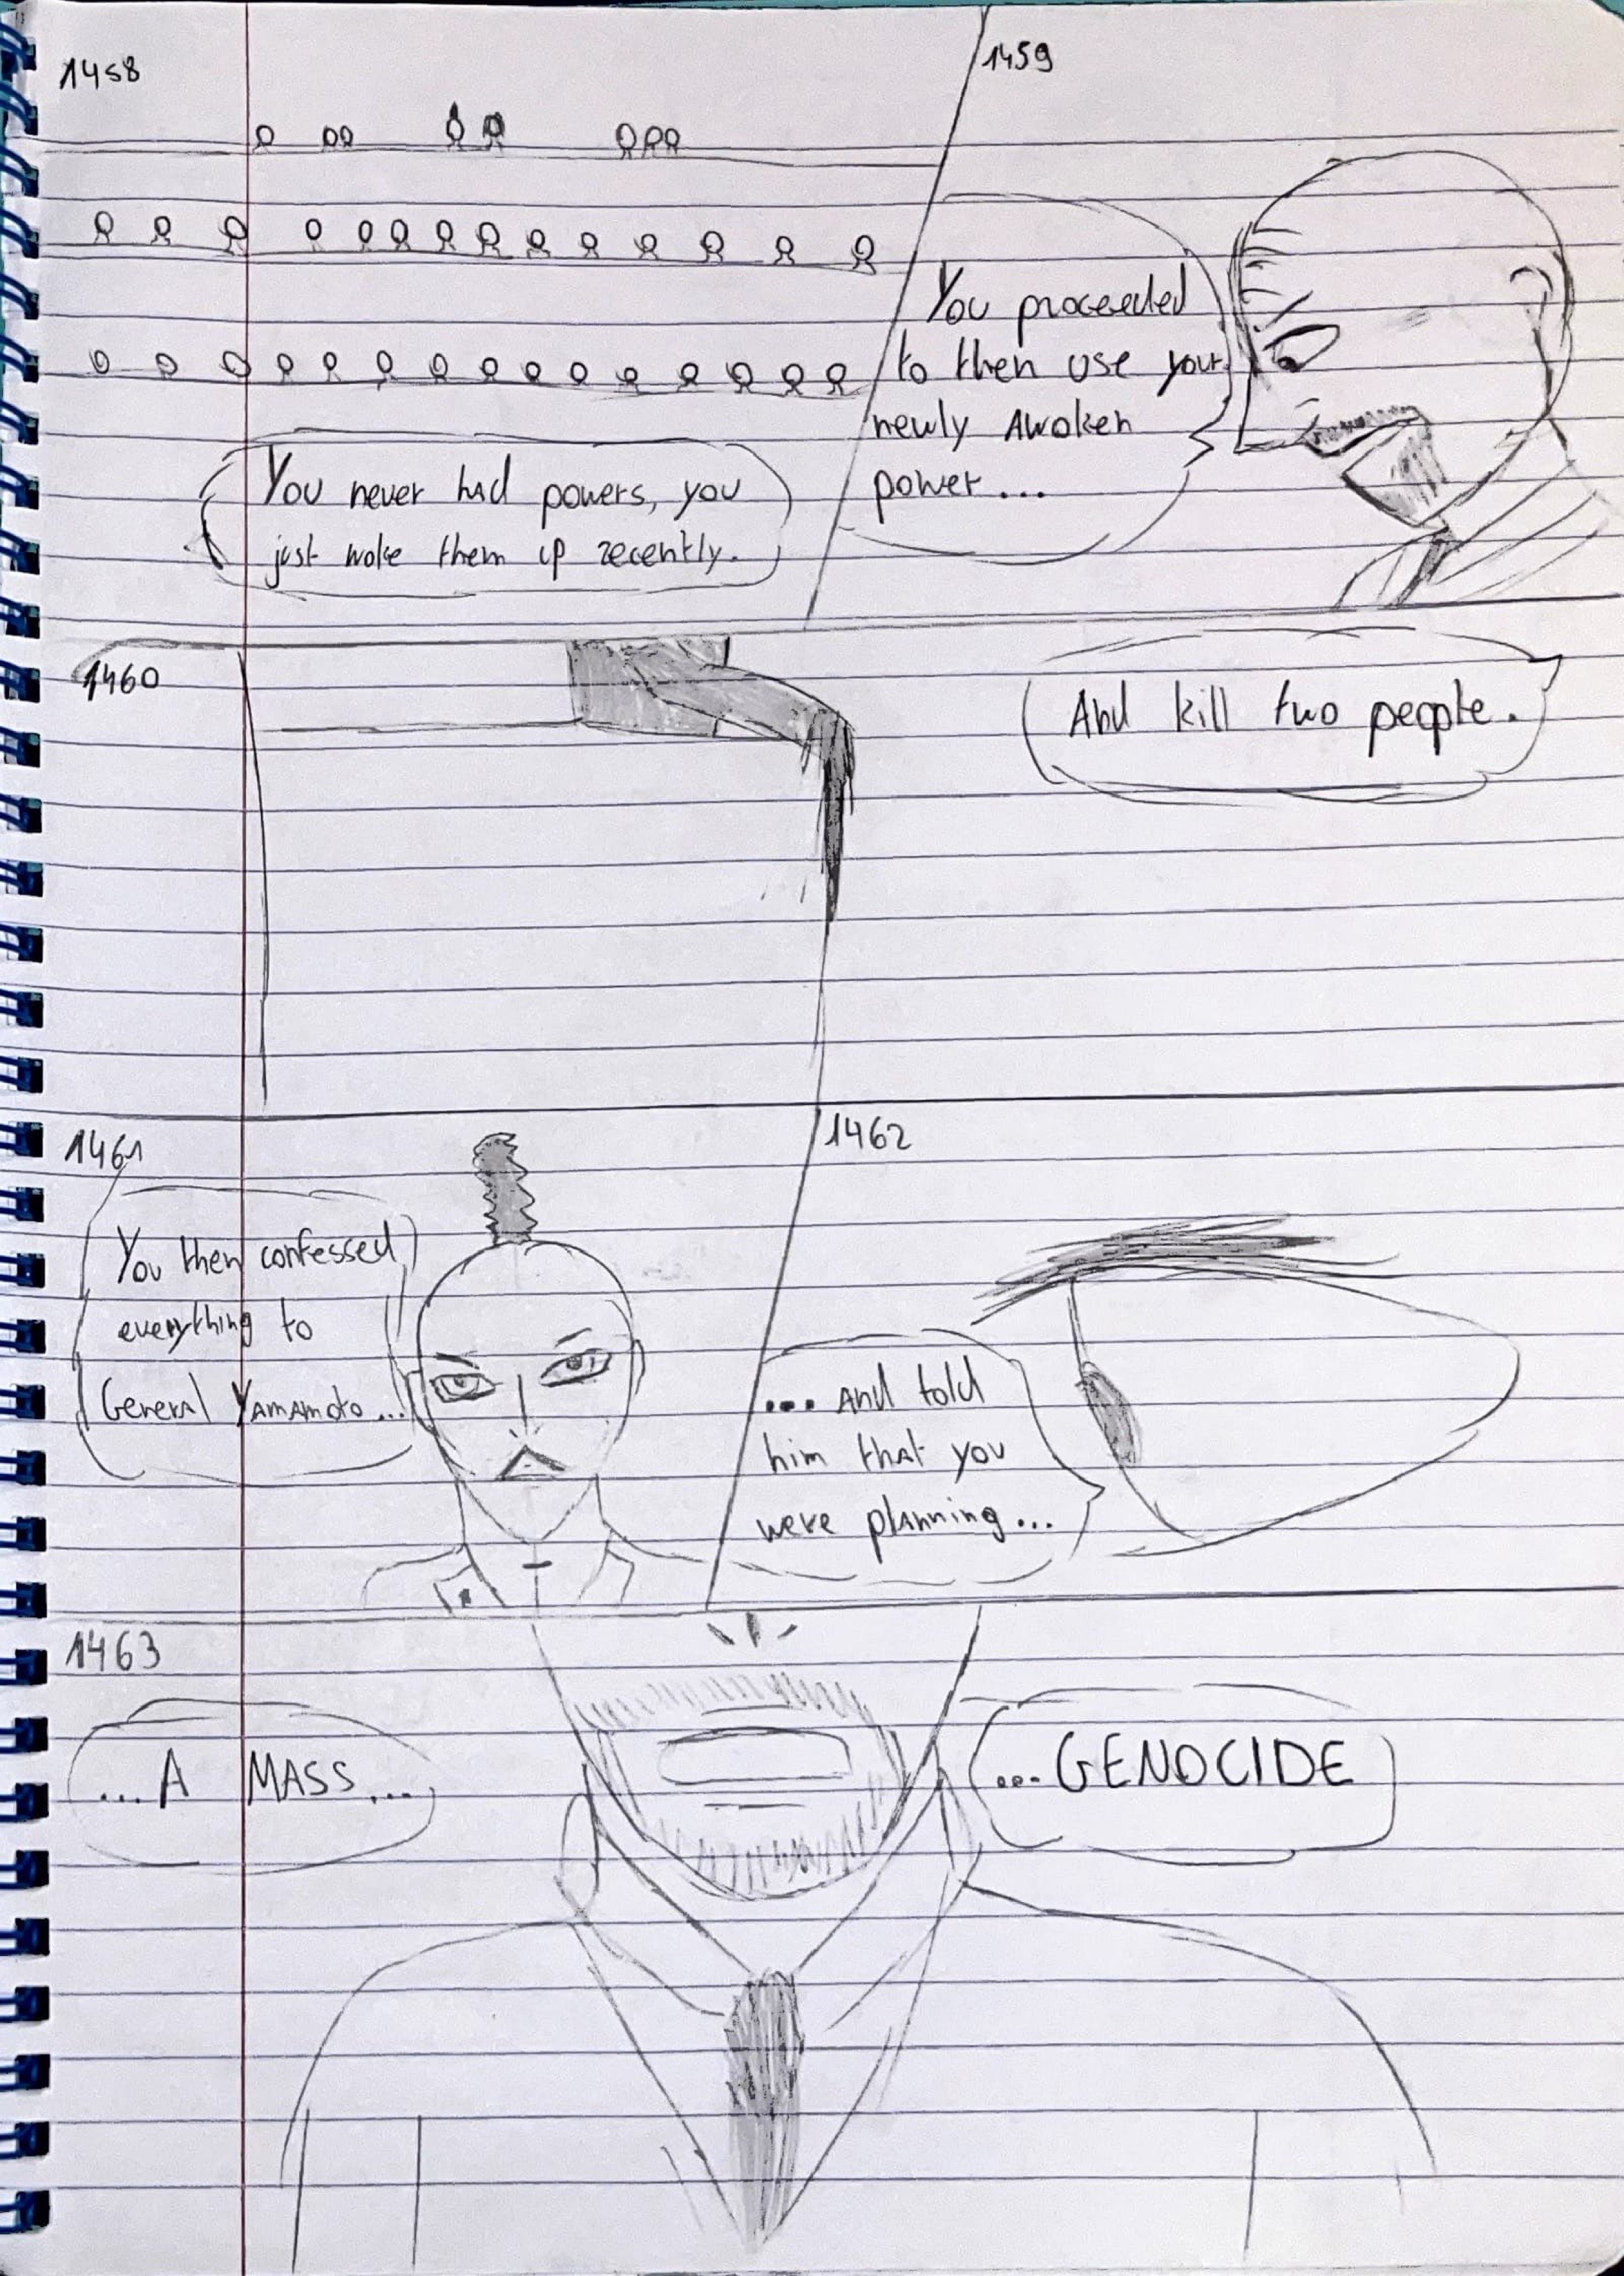 1458
You never had powers, you
just woke them up recently.
1459
You proceeded
to then use your
newly Awoken
power...
1460
And kill two people.
1461
You then confessed
everything to
General Yamamoto...
1462
... and told
him that you
were planning...
1463
... A MASS...
... GENOCIDE